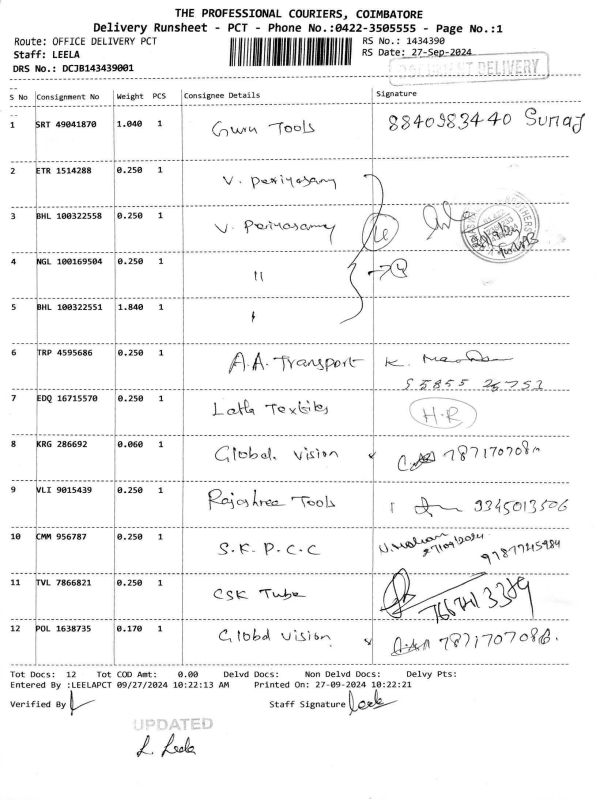 THE PROFESSIONAL COURIERS, COIMBATORE
Delivery Runsheet - PCT - Phone No.:0422-3505555 - Page No.:1
Route: OFFICE DELIVERY PCT RS No.: 1434390
Staff: LEELA RS Date: 27-Sep-2024
DRS No.: DCJB143439001 DELIVERY
S No Consignment No Weight PCS Consignee Details Signature
1 SRT 49041870 1.040 1 Guru Tools 8840983440 Suraj
2 ETR 1514288 0.250 1 V. Periyasamy
3 BHL 100322558 0.250 1 V. Periyasamy
4 NGL 100169504 0.250 1 "
5 BHL 100322551 1.840 1
6 TRP 4595686 0.250 1 A.A. Transport K.
7 EDQ 16715570 0.250 1 Latha Textiles H.R
8 KRG 286692 0.060 1 Global. Vision
9 VLI 9015439 0.250 1 Rajashree Tools 9345013506
10 CMM 956787 0.250 1 S.K.P.C.C
11 TVL 7866821 0.250 1 CSK Tube
12 POL 1638735 0.170 1 Global Vision
Tot Docs: 12 Tot COD Amt: 0.00 Delvd Docs: Non Delvd Docs: Delvy Pts:
Entered By :LEELAPCT 09/27/2024 10:22:13 AM Printed On: 27-09-2024 10:22:21
Verified By Staff Signature Leela
UPDATED
L. Leela